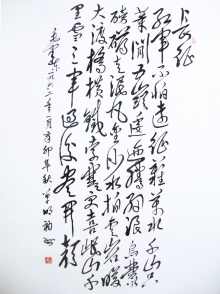 长征
红军不怕远征难万水千山只
等闲五岭逶迤腾细浪乌蒙
磅礴走泥丸金沙水拍云崖暖
大渡桥横铁索寒更喜岷山千
里雪三军过后尽开颜